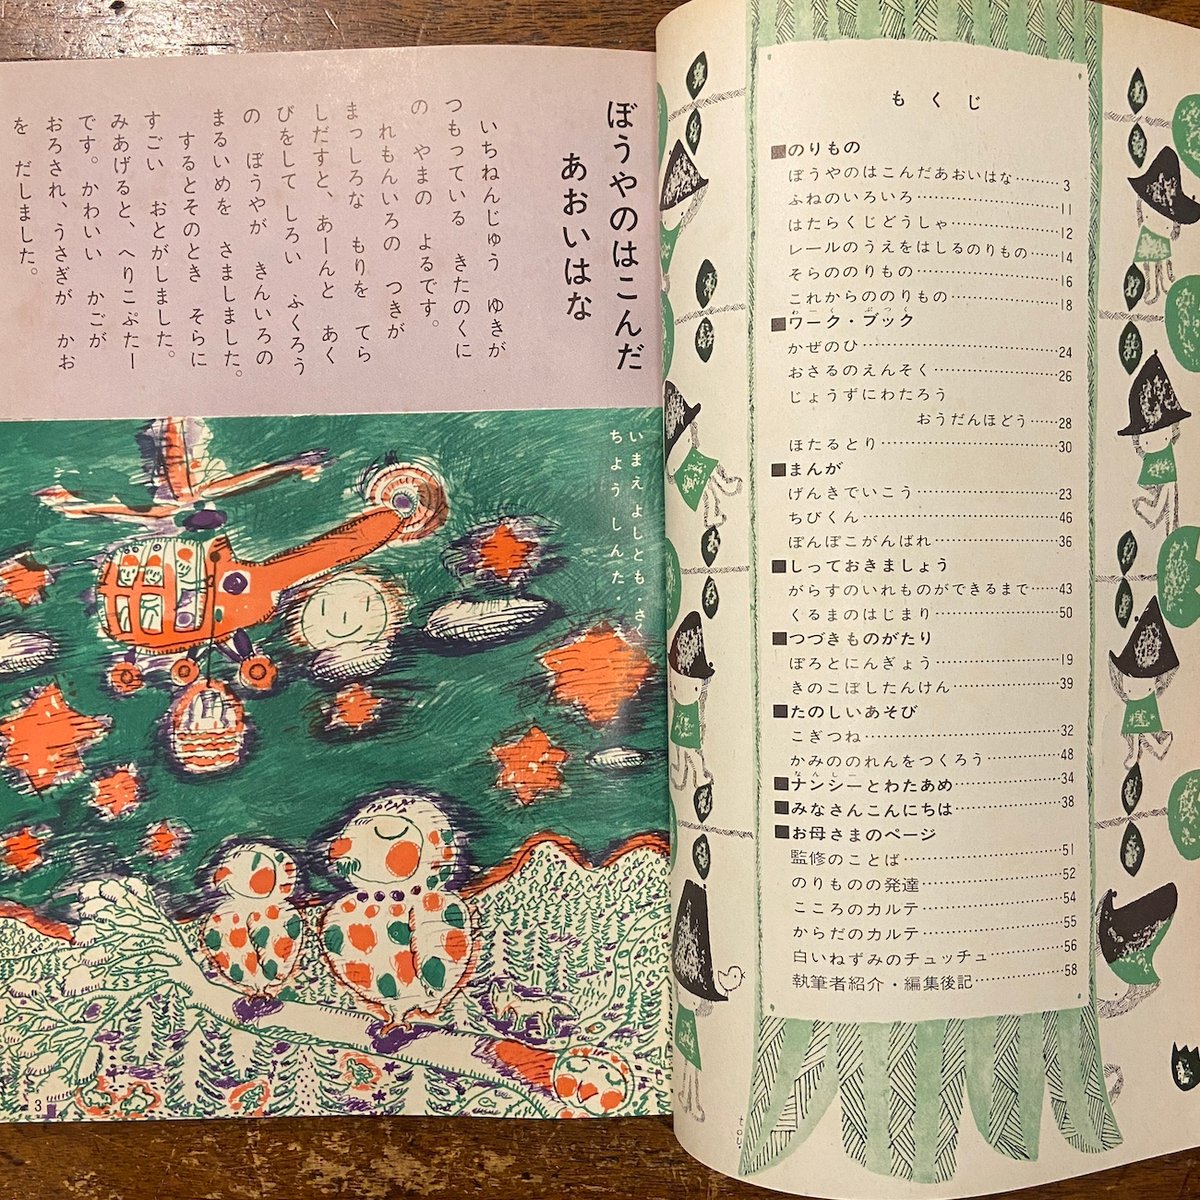 ぼうやのはこんだ
あおいはな
いちねんじゅう ゆきが
つもっている きたのくに
の やまの よるです。
れもんいろの つきが
まっしろな もりを てら
しだすと、あーんと あく
びをして しろい ふくろう
の ぼうやが きんいろの
まるいめを さましました。
するとそのとき そらに
すごい おとがしました。
みあげると、へりこぷたー
です。かわいい かごが
おろされ、うさぎが かお
を だしました。
いまえよしとも・さく
ちょうしんた・
3
もくじ
■のりもの
ぼうやのはこんだあおいはな………3
ふねのいろいろ………11
はたらくじどうしゃ………12
レールのうえをはしるのりもの………14
そらののりもの………16
これからののりもの………18
■ワーク・ブック
かぜのひ………24
おさるのえんそく………26
じょうずにわたろう
おうだんほどう………28
ほたるとり………30
■まんが
げんきでいこう………23
ちびくん………46
ぽんぽこがんばれ………36
■しっておきましょう
がらすのいれものができるまで………43
くるまのはじまり………50
■つづきものがたり
ぽろとにんぎょう………19
きのこぼしたんけん………39
■たのしいあそび
こぎつね………32
かみののれんをつくろう………48
■ナンシーとわたあめ………34
■みなさんこんにちは………38
■お母さまのページ
監修のことば………51
のりものの発達………52
こころのカルテ………54
からだのカルテ………55
白いねずみのチュッチュ………56
執筆者紹介・編集後記………58